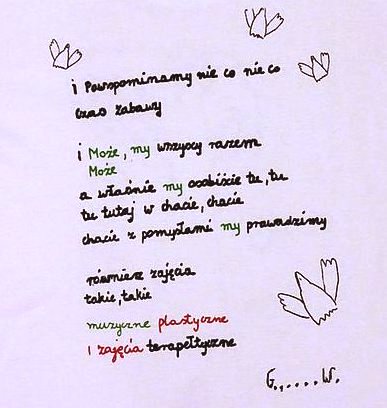 i Powspominamy nie co nie co
czas zabawy
i Może, my wszyscy razem
Może
a właśnie my osobiście tu, tu
tu tutaj w chacie, chacie
chacie z pomysłami my prowadzimy
również zajęcia
takie, takie
muzyczne plastyczne
i zajęcia terapełtyczne
G.,....W.